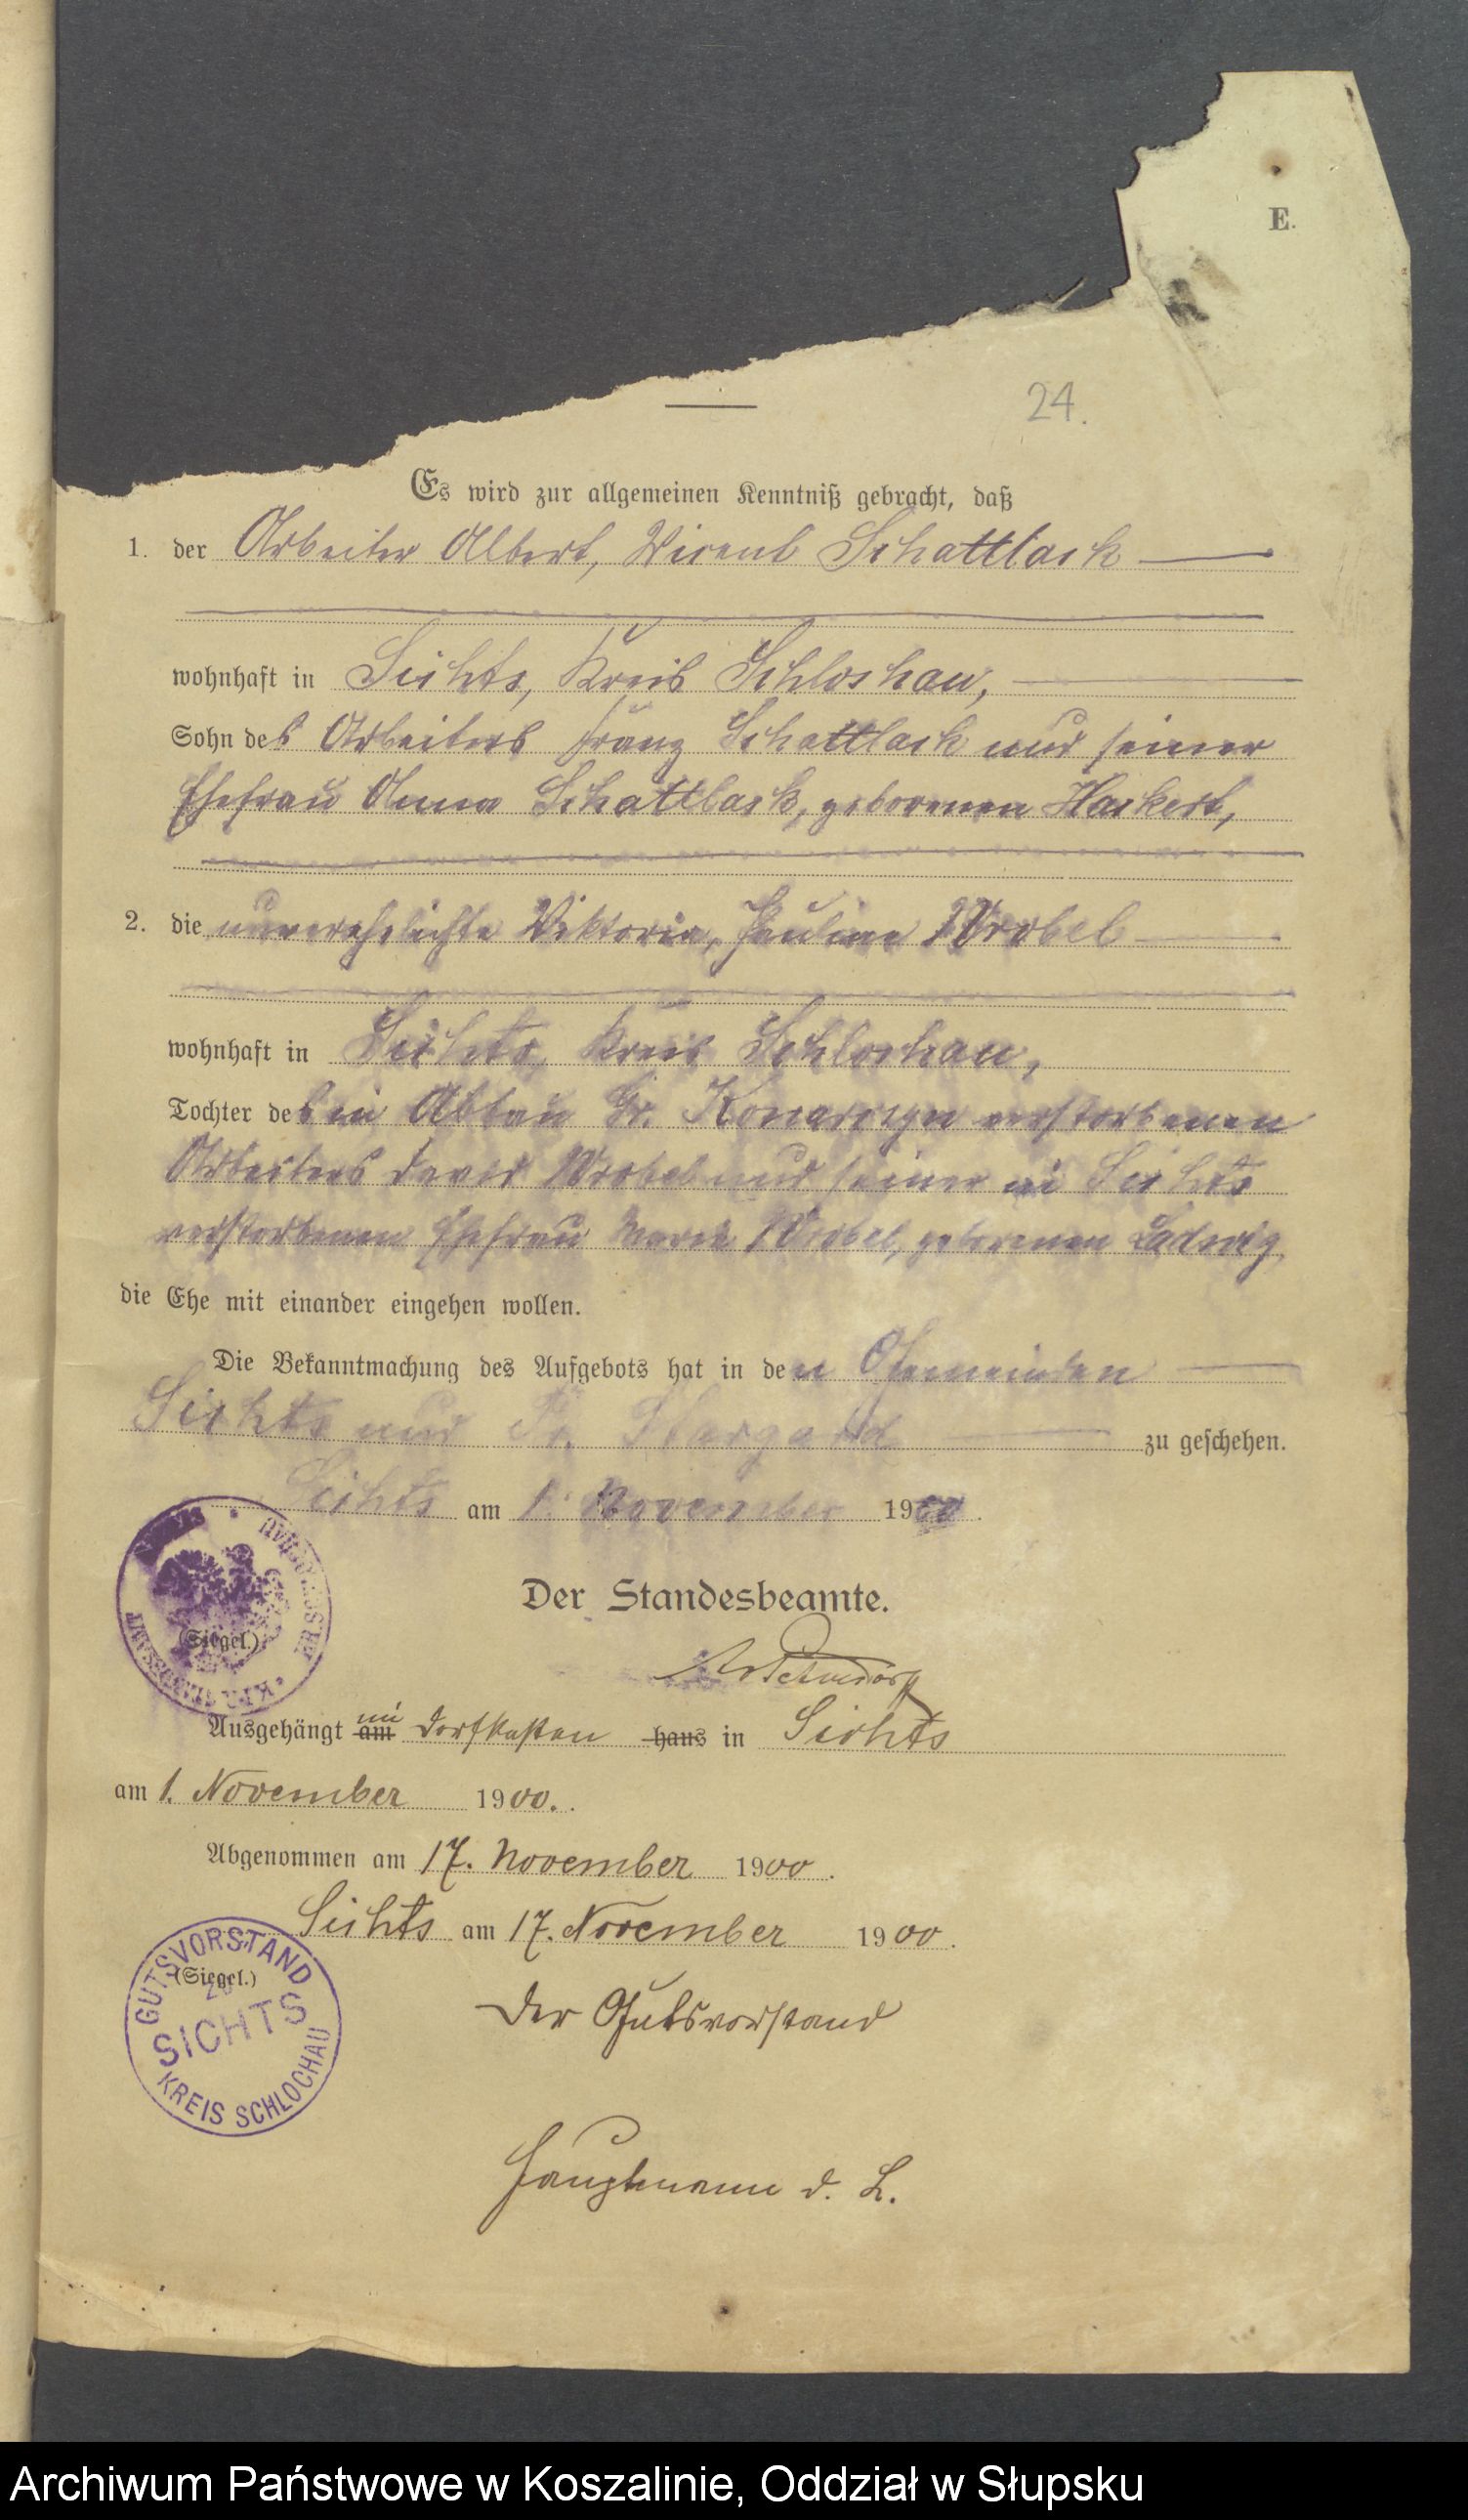 E.
24.
Es wird zur allgemeinen Kenntniß gebracht, daß
1. der Arbeiter Albert, Schattlack
wohnhaft in Sichts, Kreis Schlochau,
Sohn des Arbeiters Franz Schattlack und seiner
Ehefrau Anna Schattlack, geborenen Hackert,
2. die unverehelichte Viktoria, Pauline Wrobel
wohnhaft in Sichts, Kreis Schlochau,
Tochter des in Abbau Gr. Konarczyn verstorbenen
Arbeiters Wrobel und seiner in Sichts
verstorbenen Ehefrau Wrobel, geborenen Ladwig
die Ehe mit einander eingehen wollen.
Die Bekanntmachung des Aufgebots hat in den Gemeinden
Sichts und Pr. Stargard zu geschehen.
Sichts am 1. November 1900.
Der Standesbeamte.
(Siegel.)
Ausgehängt am im Dorfkasten haus in Sichts
am 1. November 1900.
Abgenommen am 17. November 1900.
Sichts am 17. November 1900.
GUTSVORSTAND
(Siegel.)
ZU
SICHTS
KREIS SCHLOCHAU
Der Gutsvorstand
Hauptmann d. L.
Archiwum Państwowe w Koszalinie, Oddział w Słupsku